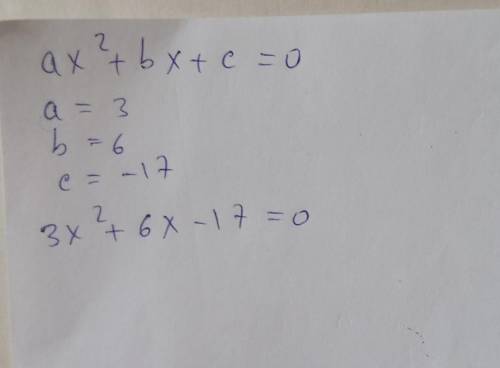 ax² + bx + c = 0
a = 3
b = 6
c = -17
3x² + 6x - 17 = 0